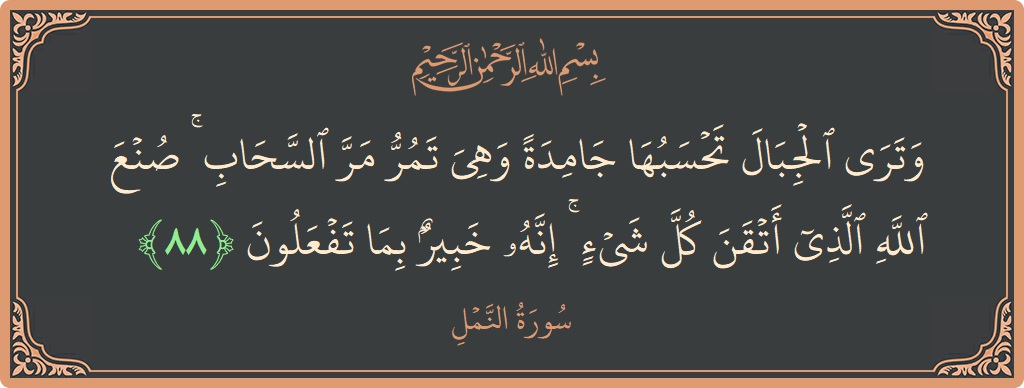 بِسْمِ اللهِ الرَّحْمٰنِ الرَّحِيْمِ
وَتَرَى ٱلْجِبَالَ تَحْسَبُهَا جَامِدَةً وَهِىَ تَمُرُّ مَرَّ ٱلسَّحَابِ ۚ صُنْعَ
ٱللَّهِ ٱلَّذِىٓ أَتْقَنَ كُلَّ شَىْءٍ ۚ إِنَّهُۥ خَبِيرٌۢ بِمَا تَفْعَلُونَ ﴿٨٨﴾
سُورَةُ النَّمْلِ